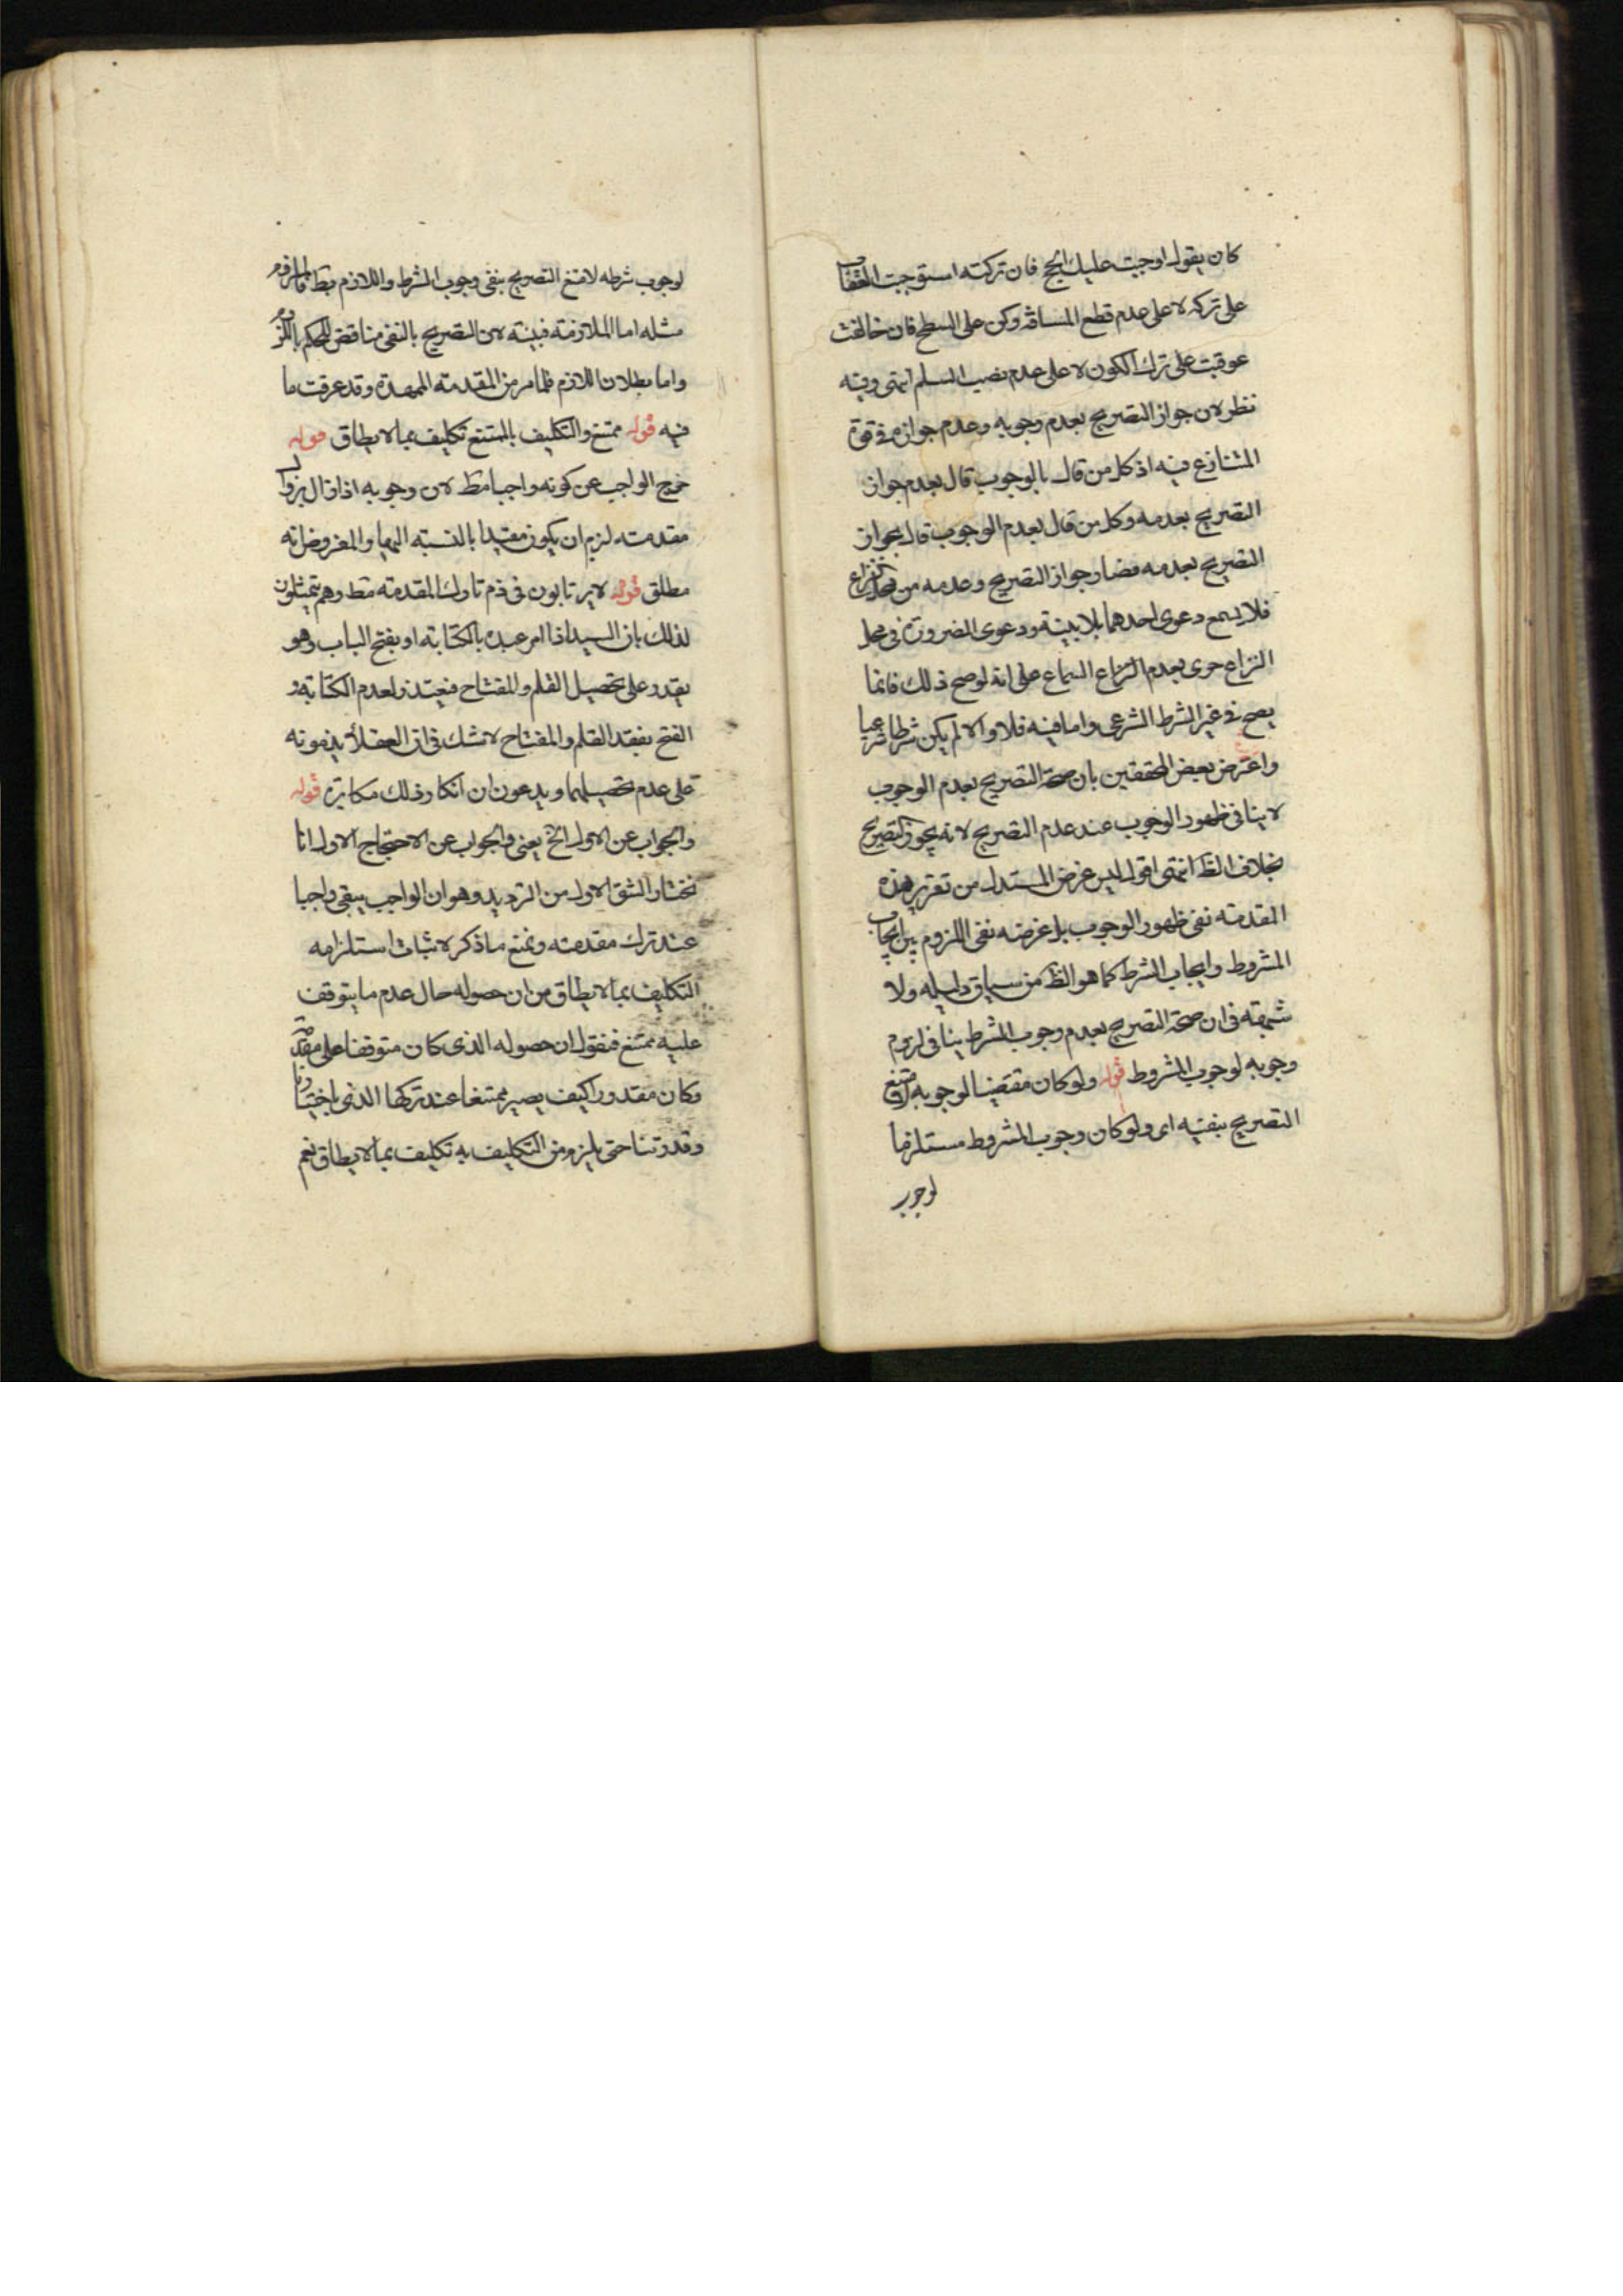 كان يقول اوجبت عليك الحج فان تركته استوجبت العقاب
على تركه لا على عدم قطع المسافة وكن على السطح فان خالفت
عوقبت على ترك الكون لا على عدم نصب السلم انتهى وفيه
نظر لان جواز التصريح بعدم وجوبه وعدم جوازه فى قوة
المتنازع فيه اذ كل من قال بالوجوب قال بعدم جواز
التصريح بعدمه وكل من قال بعدم الوجوب قال بجواز
التصريح بعدمه فصار جواز التصريح وعدمه من محل النزاع
فلا يسمع دعوى احدهما بلا بينة ودعوى الضرورة فى محل
النزاع حرى بعدم السماع على انه لو صح ذلك فانما
يصح فى غير الشرط الشرعى واما فيه فلا والا لم يكن شرطا شرعيا
واعترض بعض المحققين بان صحة التصريح بعدم الوجوب
لا ينافى ظهور الوجوب عند عدم التصريح لانه يجوز التصريح
بخلاف الظ انتهى اقول ليس غرض المستدل من تقرير هذه
المقدمة نفى ظهور الوجوب بل غرضه نفى اللزوم بين ايجاب
المشروط وايجاب الشرط كما هو الظ من سياق دليله ولا
شبهة فى ان صحة التصريح بعدم وجوب الشرط ينافى لزوم
وجوبه لوجوب المشروط قوله ولو كان مقتضيا لوجوبه لامتنع
التصريح بنفيه اى ولو كان وجوب المشروط مستلزما
لوجوب
لوجوب شرطه لامتنع التصريح بنفى وجوب الشرط واللازم بط فالملزوم
مثله اما الملازمة فبينة لان التصريح بالنفى مناقض للحكم باللزوم
واما بطلان اللازم فلما مر من المقدمة الممهدة وقد عرفت ما
فيه قوله ممتنع والتكليف بالممتنع تكليف بما لا يطاق قوله
خرج الواجب عن كونه واجبا مط لان وجوبه اذا زال بزوال
مقدمته لزم ان يكون مقيدا بالنسبة اليها والمفروض انه
مطلق قوله لا يرتابون فى ذم تارك المقدمة مط وهم يتمثلون
لذلك بان السيد اذا امر عبده بالكتابة او بفتح الباب وهو
يقدر على تحصيل القلم والمفتاح فيعتذر لعدم الكتابة و
الفتح بفقد القلم والمفتاح لا شك فى ان العقلأ يذمونه
على عدم تحصيلهما ويدعون ان انكار ذلك مكابرة قوله
والجواب عن الاول الخ يعنى والجواب عن الاحتجاج الاول انا
نختار الشق الاول من الترديد وهو ان الواجب يبقى واجبا
عند ترك مقدمته ونمنع ما ذكر لاثبات استلزامه
التكليف بما لا يطاق من ان حصوله حال عدم ما يتوقف
عليه ممتنع فنقول ان حصوله الذى كان متوقفا على مقدمة
وكان مقدورا كيف يصير ممتنعا عند تركها الذى باختيارنا
وقدرتنا حتى يلزم من التكليف به تكليف بما لا يطاق نعم